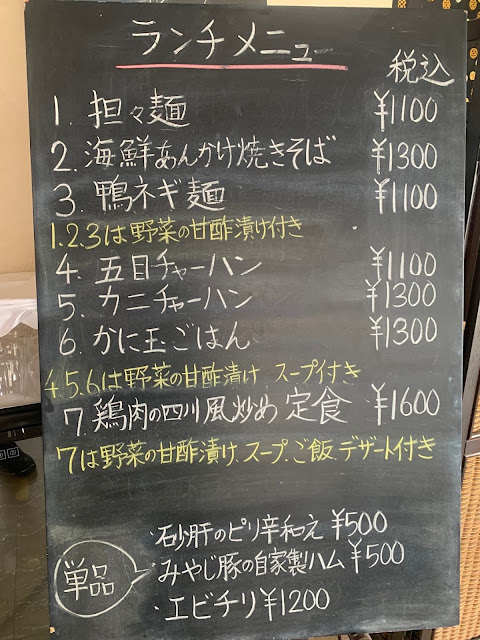 ランチメニュー
税込
1. 担々麺 ¥1100
2. 海鮮あんかけ焼きそば ¥1300
3. 鴨ネギ麺 ¥1100
1.2.3は野菜の甘酢漬け付き
4. 五目チャーハン ¥1100
5. カニチャーハン ¥1300
6 かに玉ごはん ¥1300
4.5.6は野菜の甘酢漬け スープ付き
7. 鶏肉の四川風炒め定食 ¥1600
7は野菜の甘酢漬け、スープ、ご飯、デザート付き
単品
・砂肝のピリ辛和え ¥500
・みやじ豚の自家製ハム ¥500
・エビチリ ¥1200